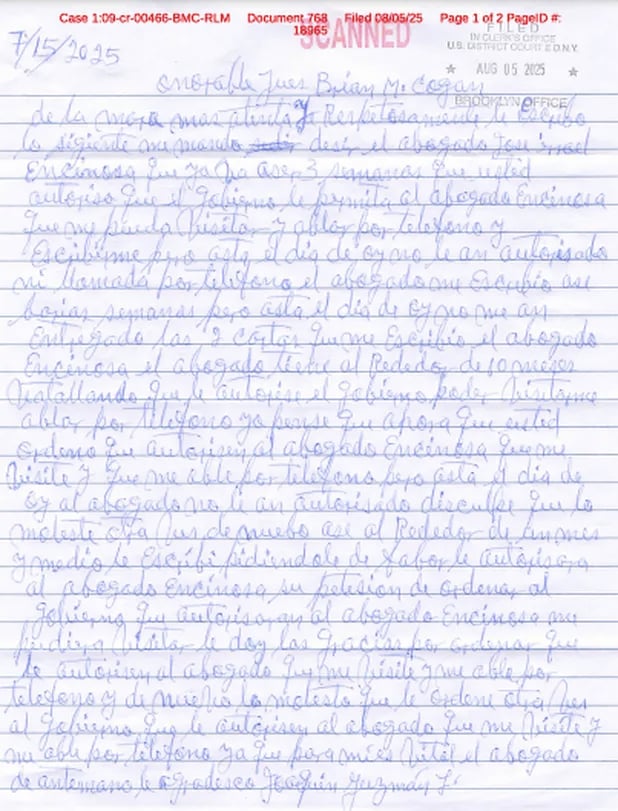 Case 1:09-cr-00466-BMC-RLM Document 768 Filed 08/05/25 Page 1 of 2 PageID #: 18965
SCANNED
FILED
IN CLERK'S OFFICE
U.S. DISTRICT COURT E.D.N.Y.
★ AUG 05 2025 ★
BROOKLYN OFFICE
7/15/2025
onorable Jues Brian M. Cogan
de la mas atenta y Respetosamente le Escribo
lo sigiente me mando desir el abogado José
Encinosa que ya ba aser 3 semanas que usted
autoriso que el gobierno le permita al abogado Encinosa
que me pueda Visitar y ablar por telefono y
Escribirme pero asta el dia de oy no le an autorisado
ni llamada por telefono el abogado me Escribio ase
barias semanas pero asta el dia de oy no me an
Entregado las 2 cartas que me Escribio el abogado
Encinosa el abogado tiene al Rededor de 10 meses
batallando que le autorise el gobierno poder Visitarme
ablar por telefono yo pense que ahora que usted
ordeno que autorisen al abogado Encinosa que me
Visite y que me able por telefono pero asta el dia de
oy al abogado no le an autorisado disculpe que lo
moleste otra bes de nuebo ase al Rededor de un mes
y medio le Escribi pidiendole de fabor le autorisara
al abogado Encinosa su petision de ordenar al
gobierno que autorisaran al abogado Encinosa me
pudiera Visitar le doy las gracias por ordenar que
le autorisen al abogado que me Visite y me able por
telefono y de nuebo lo molesto que le ordene otra bes
al gobierno que le autorisen al abogado que me Visite y
me able por telefono ya que para mi es Vital el abogado
de antemano le agradesco Joaquin Guzmán L.